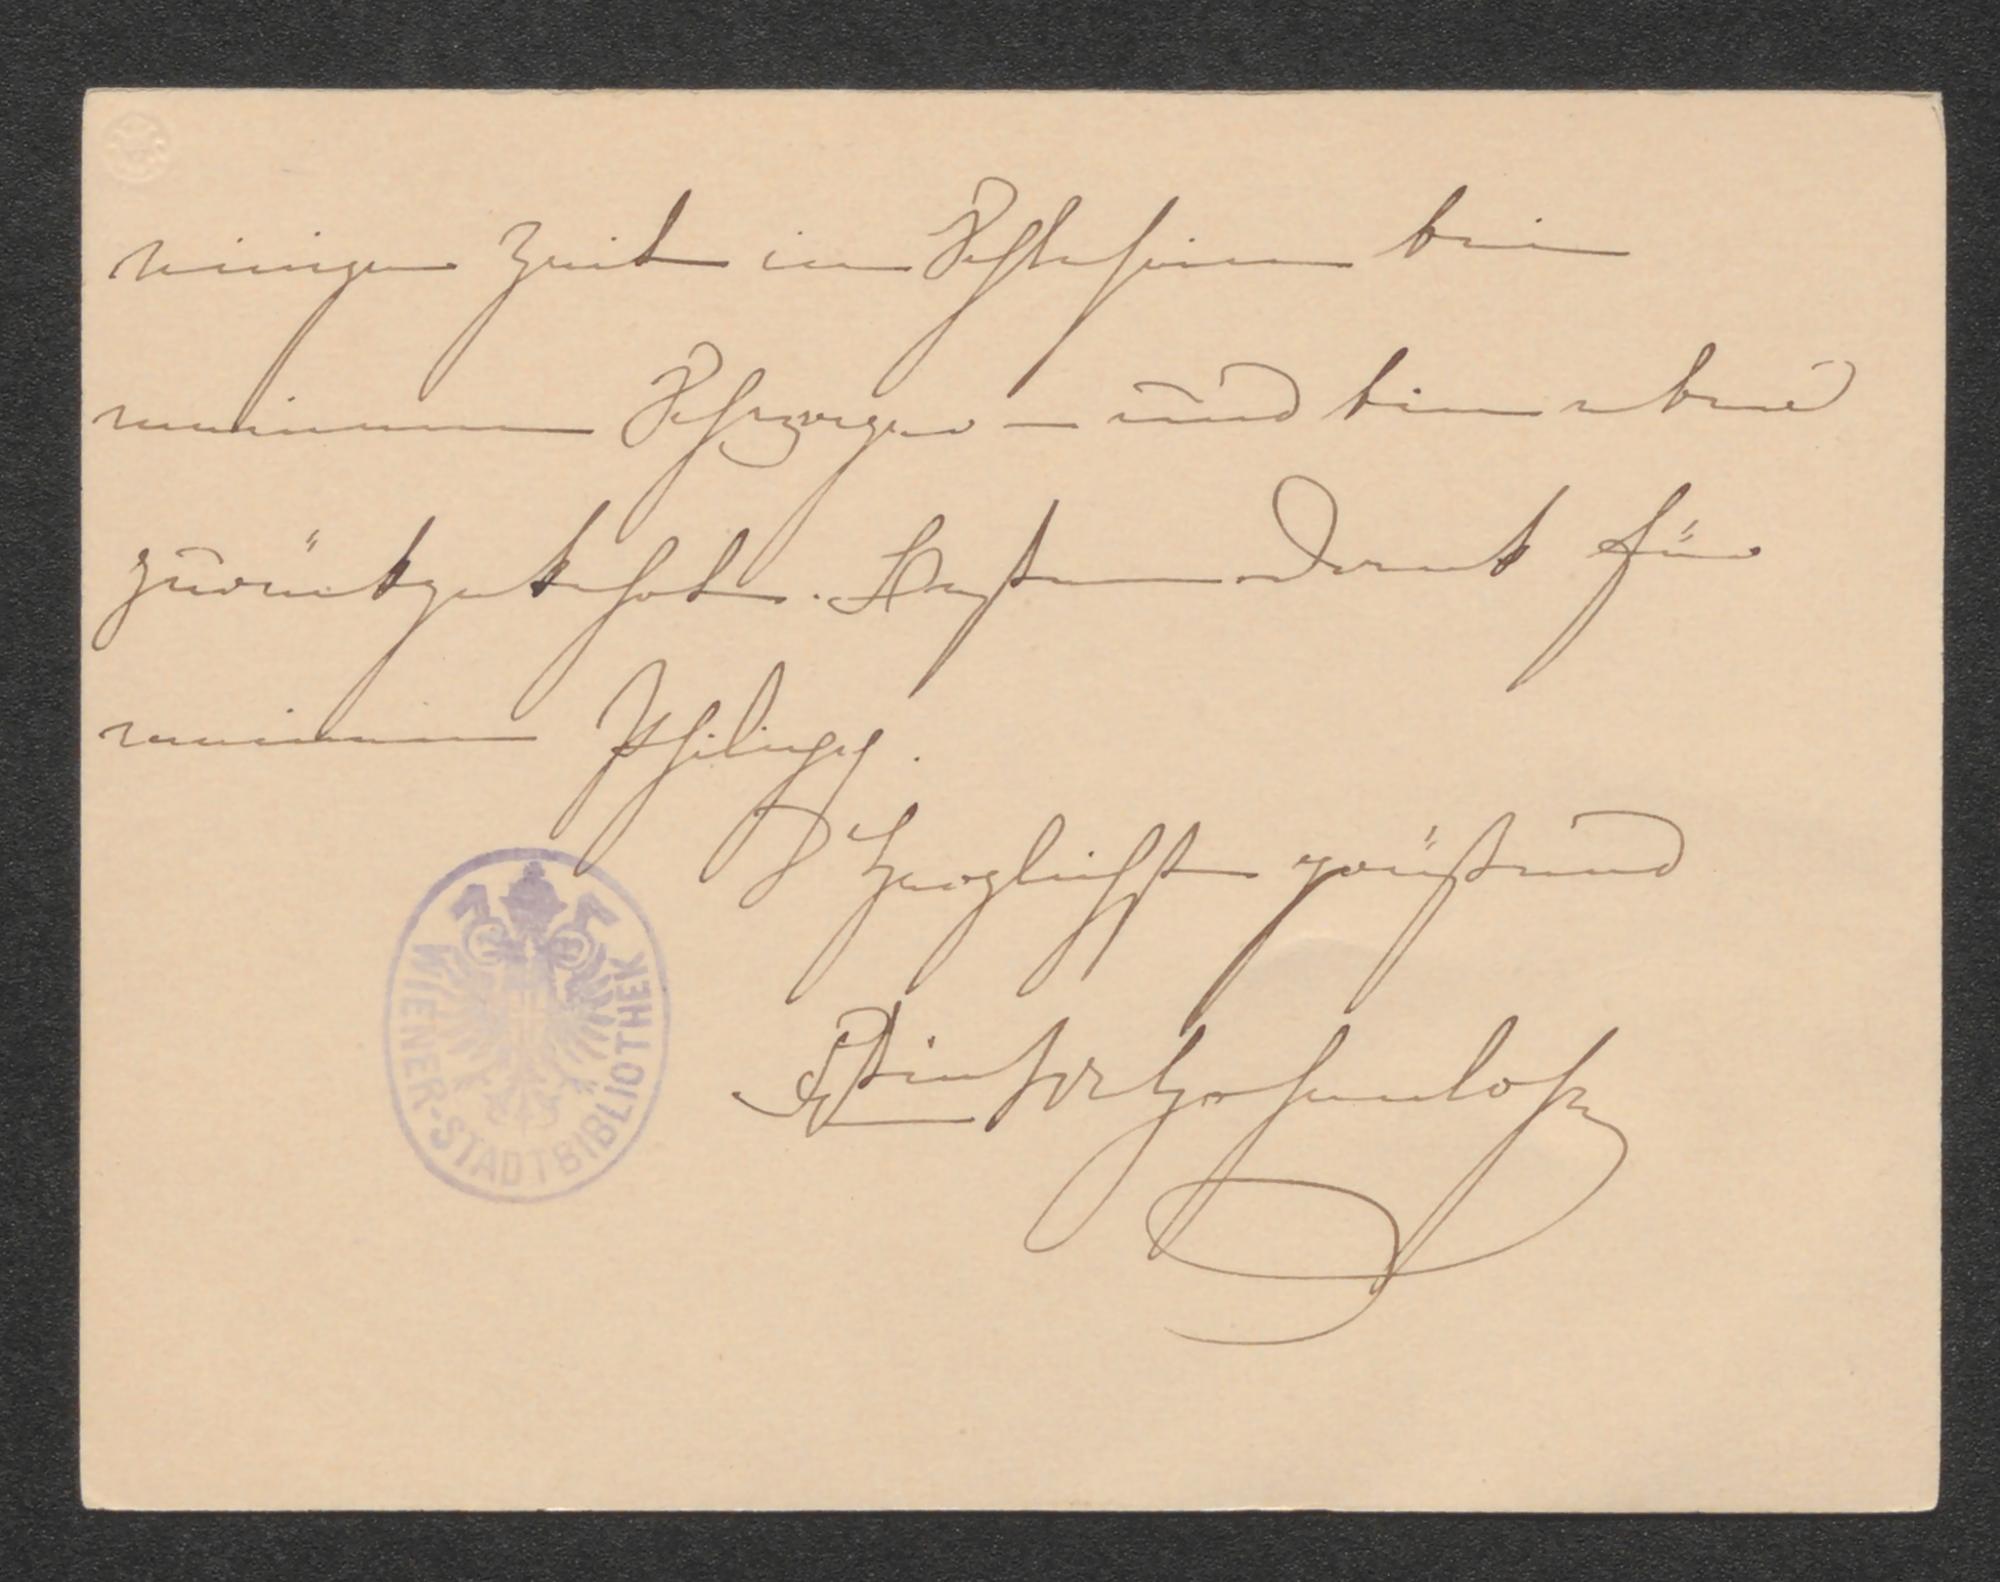 einiger Zeit in Schlesien bei
meinem Schwager – und bin eben
zurückgekehrt. Besten Dank für
meinen Philipp.
Herzlichst grüßend
Hohenlohe
WIENER-STADTBIBLIOTHEK